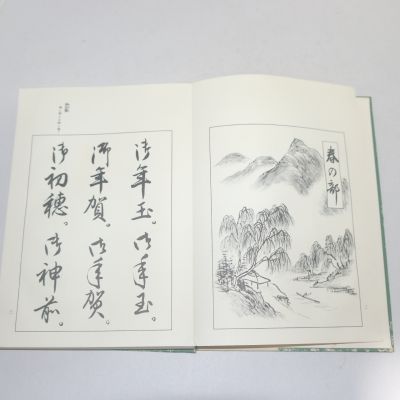 春の部
御年玉。御年玉。
御年賀。御年賀。
御初穂。御神前。